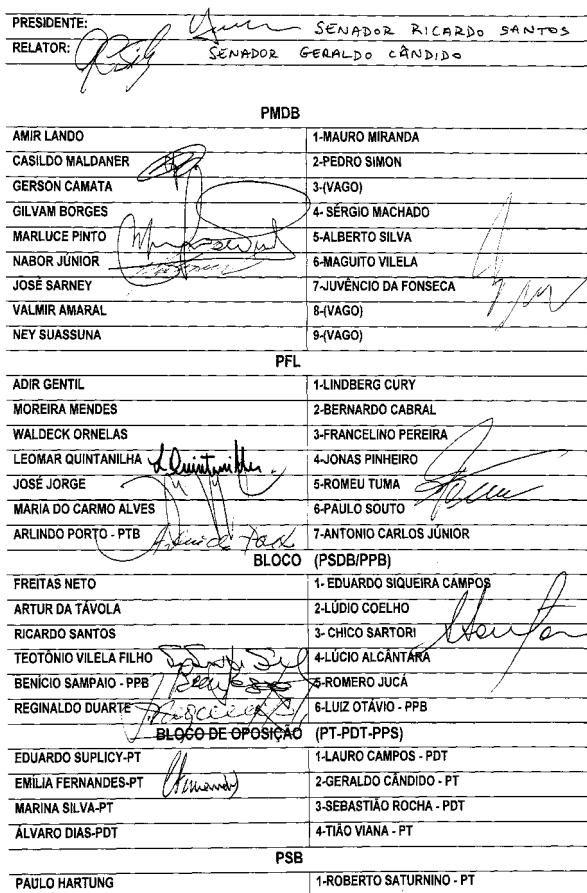 PRESIDENTE: SENADOR RICARDO SANTOS
RELATOR: SENADOR GERALDO CÂNDIDO
PMDB
AMIR LANDO 1-MAURO MIRANDA
CASILDO MALDANER 2-PEDRO SIMON
GERSON CAMATA 3-(VAGO)
GILVAM BORGES 4- SÉRGIO MACHADO
MARLUCE PINTO 5-ALBERTO SILVA
NABOR JÚNIOR 6-MAGUITO VILELA
JOSÉ SARNEY 7-JUVÊNCIO DA FONSECA
VALMIR AMARAL 8-(VAGO)
NEY SUASSUNA 9-(VAGO)
PFL
ADIR GENTIL 1-LINDBERG CURY
MOREIRA MENDES 2-BERNARDO CABRAL
WALDECK ORNELAS 3-FRANCELINO PEREIRA
LEOMAR QUINTANILHA L.Quintanilha. 4-JONAS PINHEIRO
JOSÉ JORGE 5-ROMEU TUMA
MARIA DO CARMO ALVES 6-PAULO SOUTO
ARLINDO PORTO - PTB 7-ANTONIO CARLOS JÚNIOR
BLOCO (PSDB/PPB)
FREITAS NETO 1- EDUARDO SIQUEIRA CAMPOS
ARTUR DA TÁVOLA 2-LÚDIO COELHO
RICARDO SANTOS 3- CHICO SARTORI
TEOTÔNIO VILELA FILHO 4-LÚCIO ALCÂNTARA
BENÍCIO SAMPAIO - PPB 5-ROMERO JUCÁ
REGINALDO DUARTE 6-LUIZ OTÁVIO - PPB
BLOCO DE OPOSIÇÃO (PT-PDT-PPS)
EDUARDO SUPLICY-PT 1-LAURO CAMPOS - PDT
EMÍLIA FERNANDES-PT 2-GERALDO CÂNDIDO - PT
MARINA SILVA-PT 3-SEBASTIÃO ROCHA - PDT
ÁLVARO DIAS-PDT 4-TIÃO VIANA - PT
PSB
PAULO HARTUNG 1-ROBERTO SATURNINO - PT